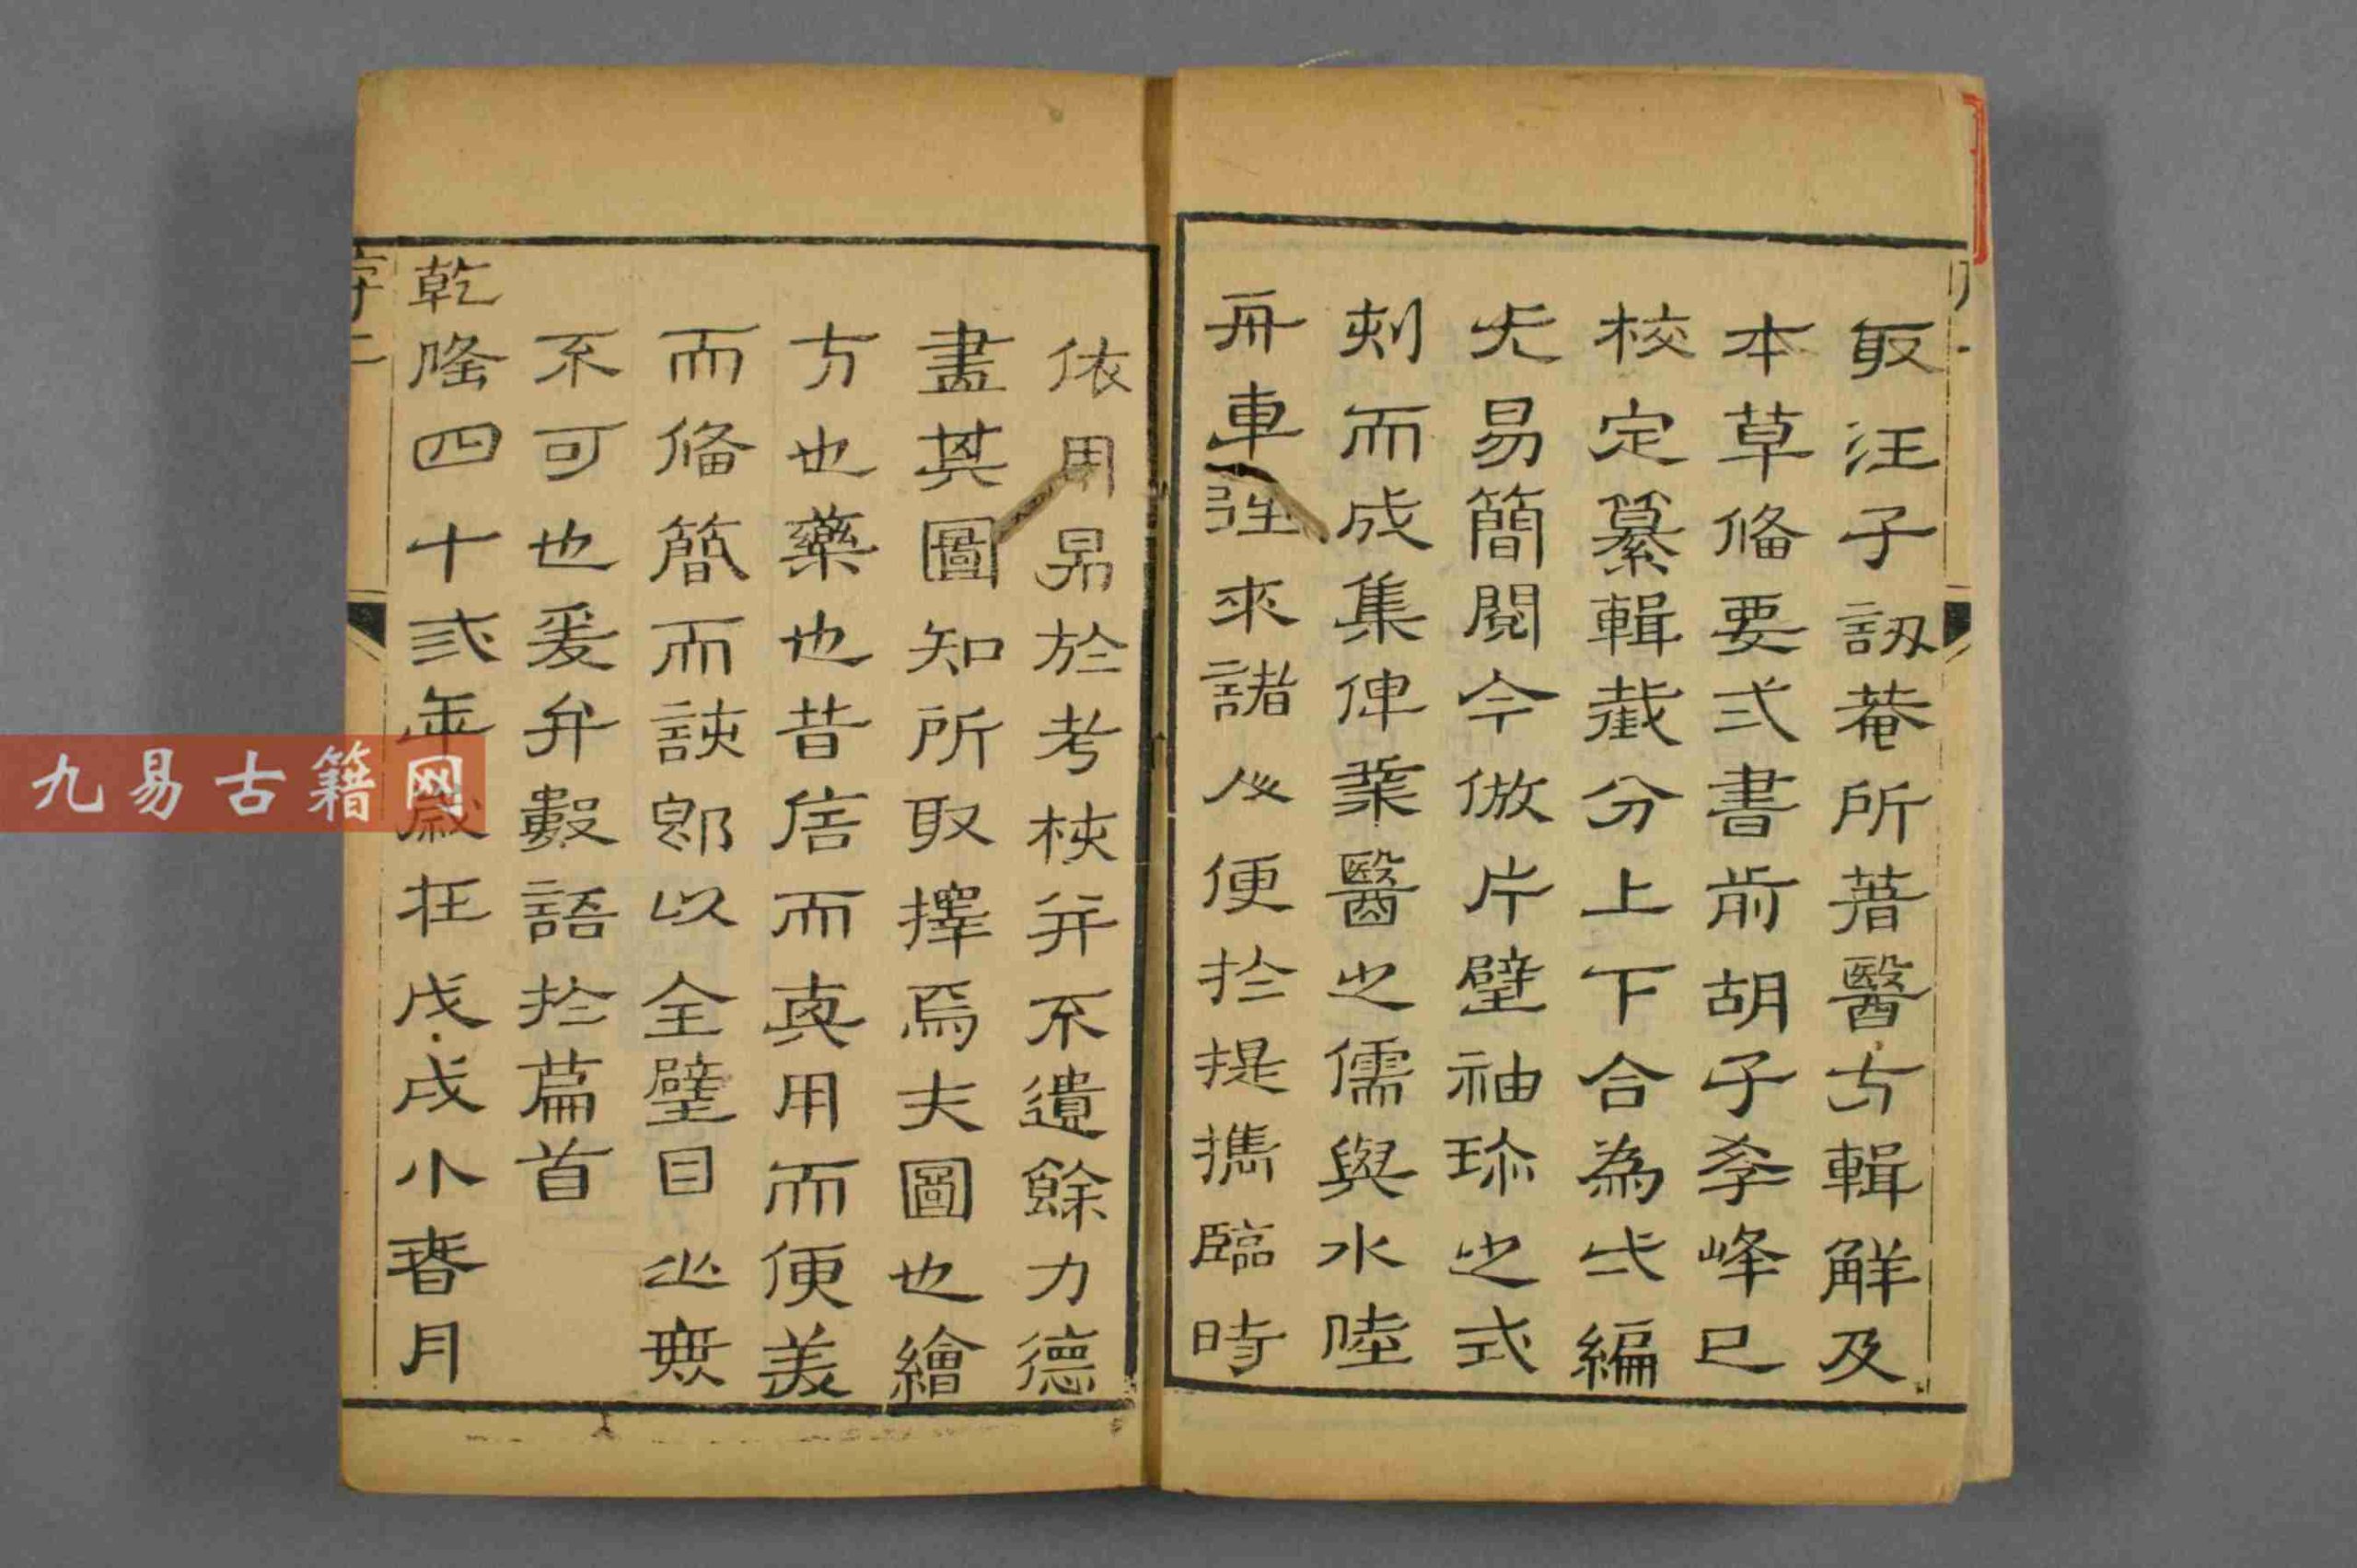 取汪子訒菴所著醫方輯解及
本草備要弍書前胡子李峰已
校定纂輯截分上下合為弌編
尤易簡閱今倣片璧袖珍之式
刻而成集俾業醫之儒與水陸
舟車往來諸人便扵提攜臨時
依用易於考核并不遺餘力德
盡其圖知所取擇焉夫圖也繪
方也藥也昔信而真用而便美
而備簡而該郎以全璧目之無
不可也爰弁數語扵篇首
乾隆四十弍年歲在戊戌小春月
序二
九易古籍网